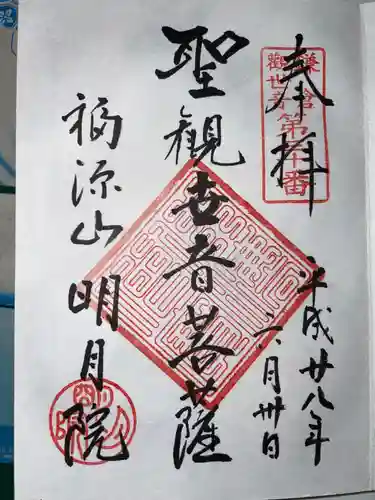 奉拝
鎌倉
觀世音
第三十番
平成廿八年
六月卅日
聖觀世音菩薩
福源山 明月院